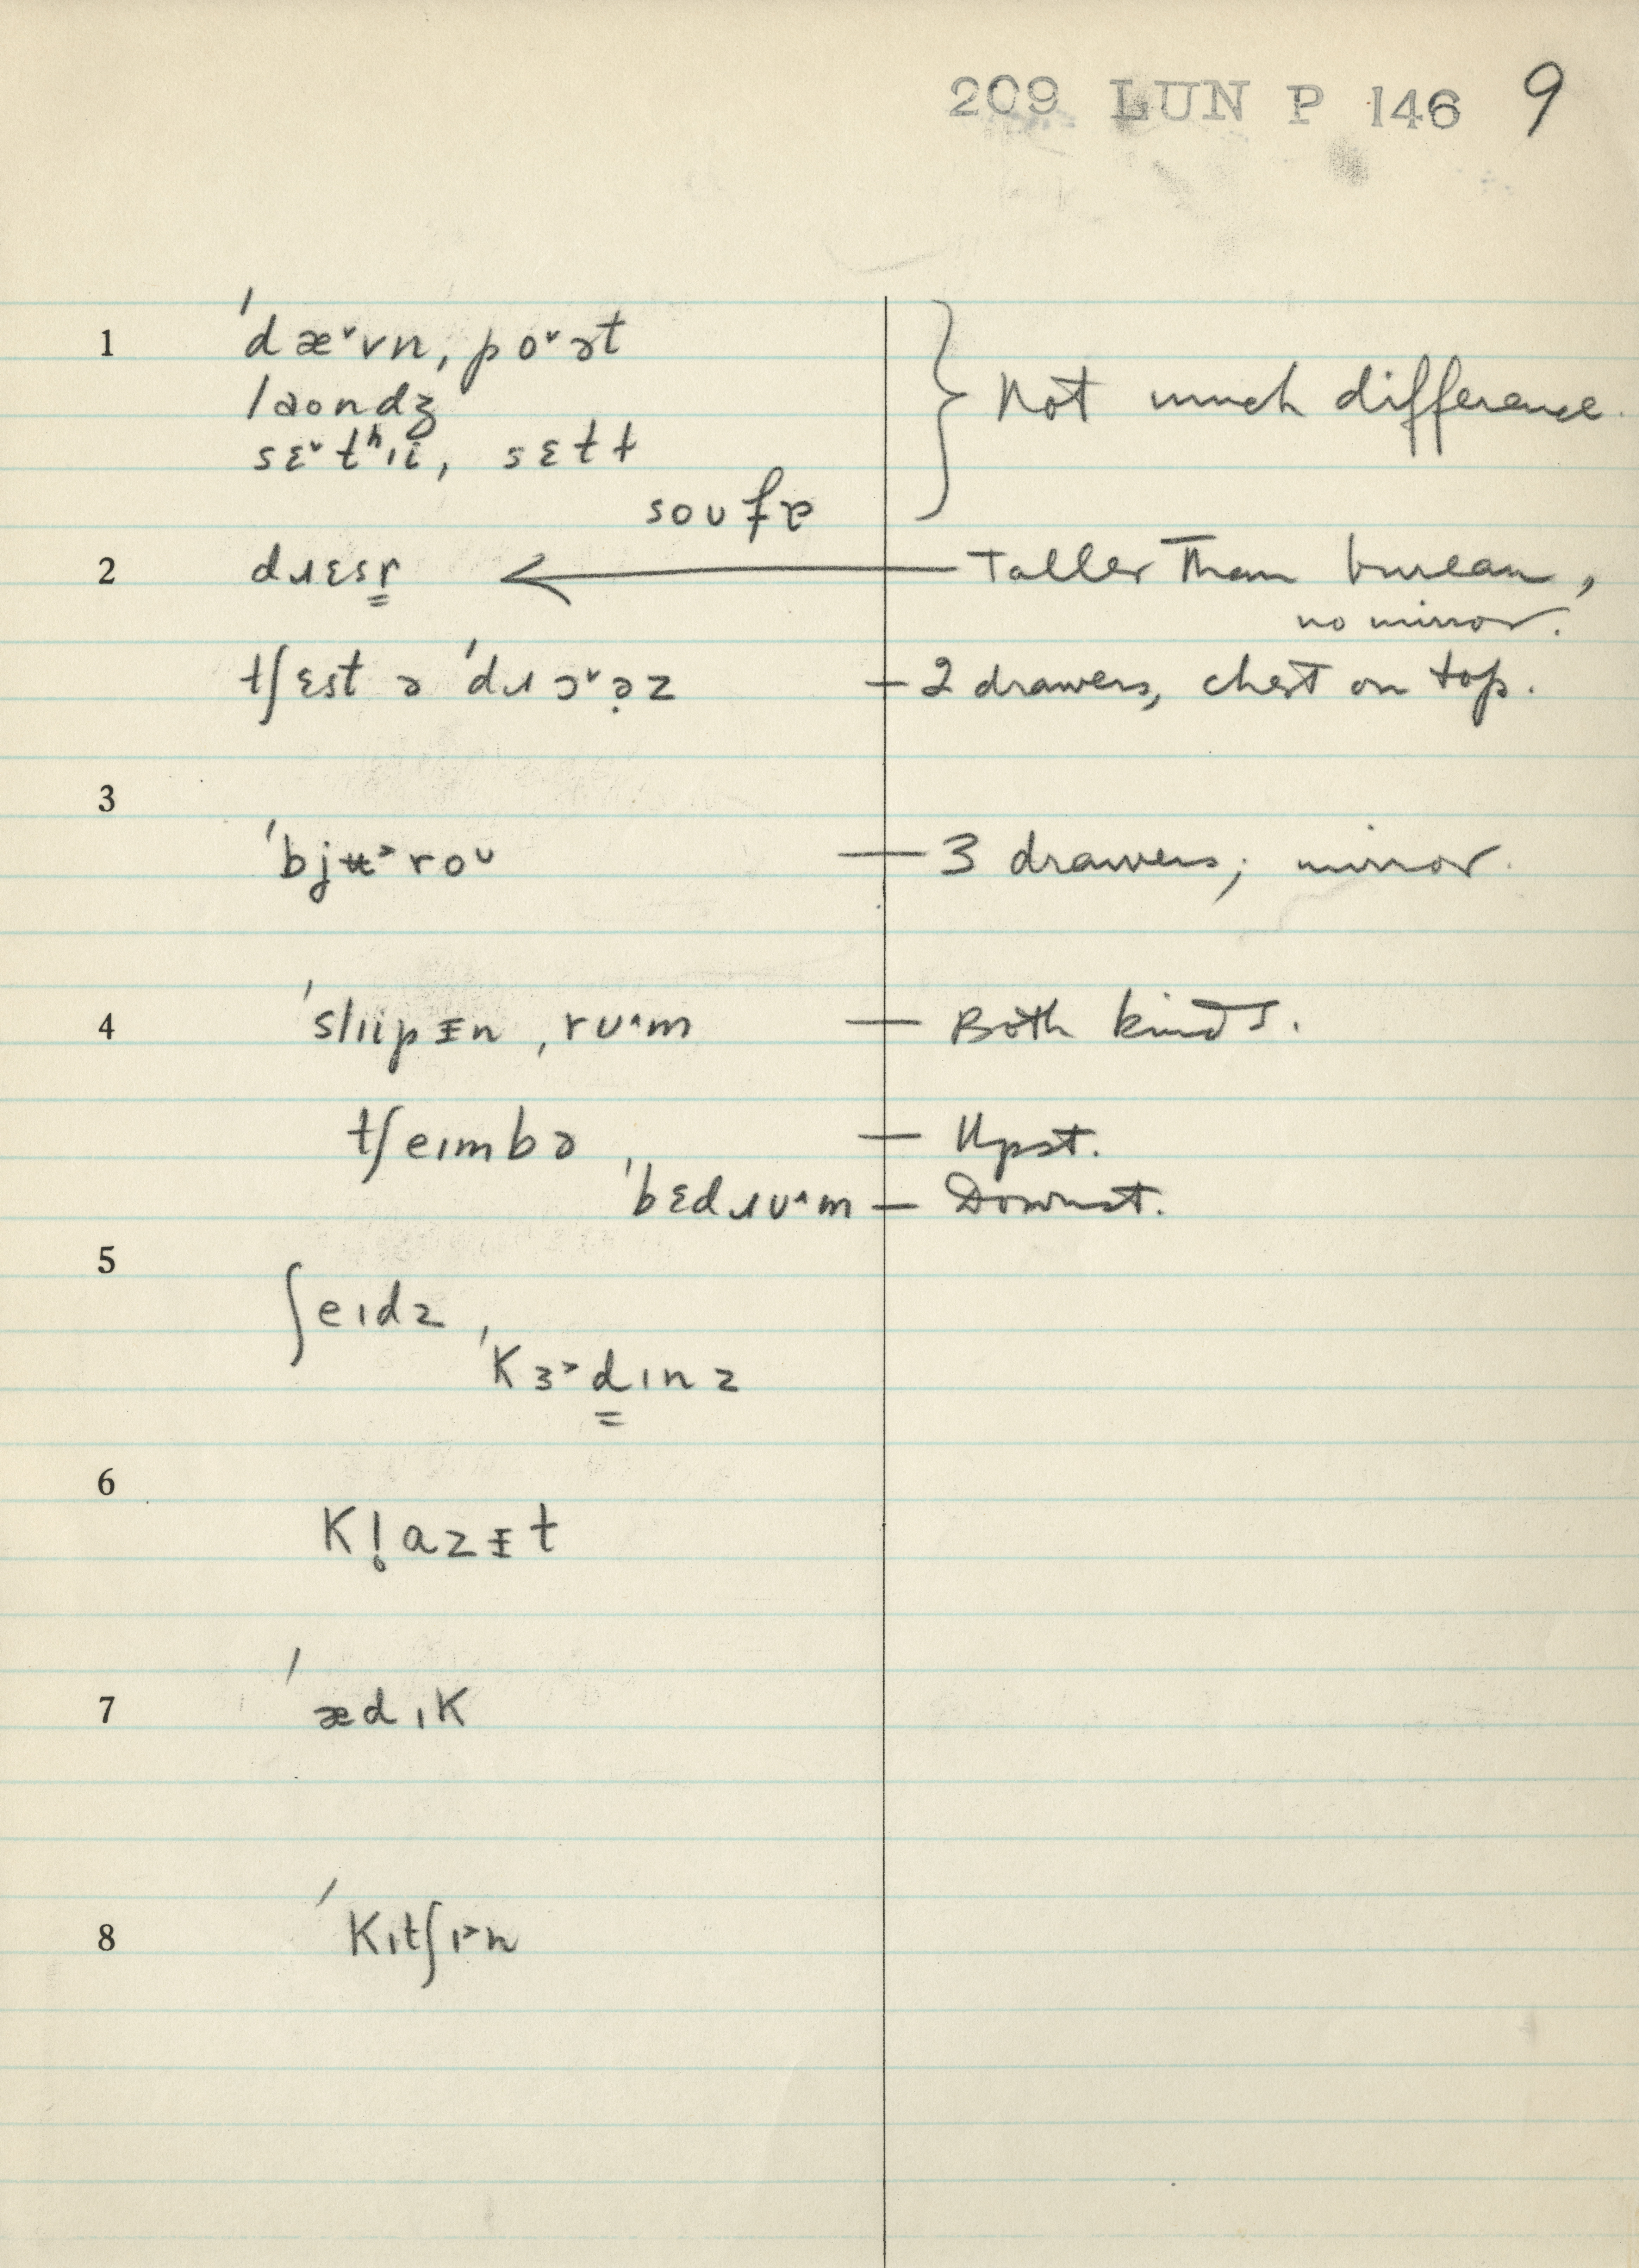 209 LUN P 146 9
1 ˈdæ˅vn, po˅ət
laʊndʒ
sɛ˅tʰɪi, sɛtɫ
Not much difference.
soʊfɐ
2 dɹɛsr̳ ← Taller than bureau,
no mirror.
tʃɛst ə ˈdɹɔ˅ə̣z — 2 drawers, chest on top.
3
ˈbjʉ˃roʊ — 3 drawers; mirror.
4 ˈslɪipɪ̵n ˌrʊ˄m — Both kinds.
tʃeɪmbə — Upst.
ˈbɛdɹʊ˄m — Downst.
5
ʃeɪdz,
ˈkɜ˃d̳ɪnz
6
kl̥azɪ̵t
7 ˈædɪk
8 ˈkɪtʃɪ˃n